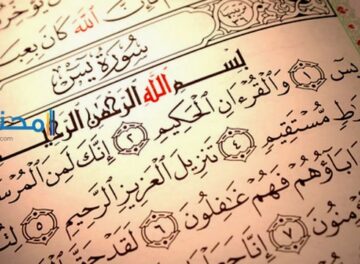 اللَّهَ كَانَ
سُورَةُ يسٓ
بِسْمِ اللَّهِ الرَّحْمَٰنِ الرَّحِي
يسٓ ١ وَالْقُرْءَانِ الْحَكِيمِ ٢ إِنَّكَ لَمِنَ الْمُرْسَ
طٍ مُّسْتَقِيمٍ ٤ تَنزِيلَ الْعَزِيزِ الرَّحِيمِ ٥ لِتُ
ءَابَاؤُهُمْ فَهُمْ غَٰفِلُونَ ٦ لَقَدْ حَقَّ
مِنُونَ ٧ إِنَّا جَعَ